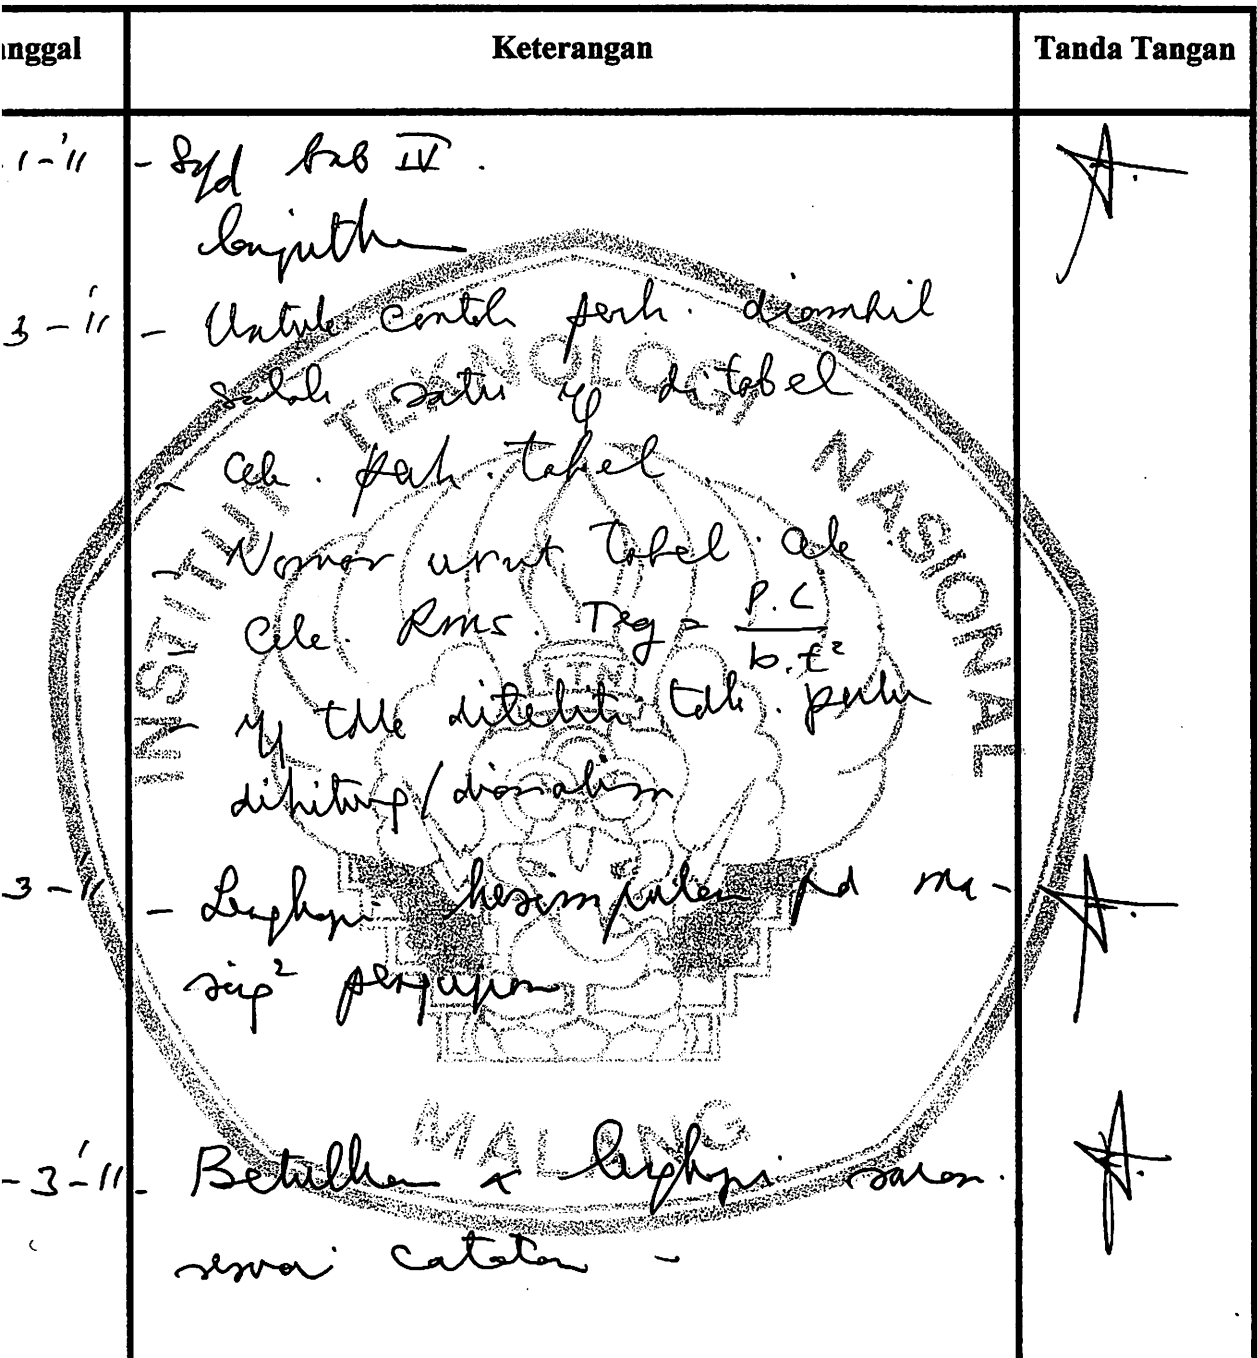 nggal Keterangan Tanda Tangan
1-'11 - S/d bab IV.
lanjutkan
3-'11 - Untuk contoh perh. diambil
salah satu yg ditabel
- Cek. perh. tabel
- Nomor urut tabel. cek.
- Cek. Rms. Teg = P.C / b.t²
- yg tdk diteliti tdk. perlu
dihitung/dianalisa
3-'11 - Lengkapi kesimpulan pd ma-
sing² pengujian
-3-'11 - Betulkan & lengkapi saran.
sesuai catatan -
INSTITUT TEKNOLOGI NASIONAL
ITN
MALANG